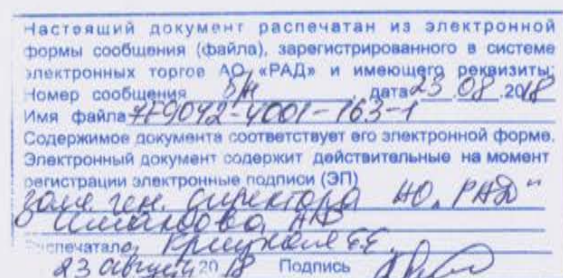 Настоящий документ распечатан из электронной
формы сообщения (файла), зарегистрированного в системе
электронных торгов АО «РАД» и имеющего реквизиты:
Номер сообщения б/н дата 23.08.2018
Имя файла 7F9042-4001-163-1
Содержимое документа соответствует его электронной форме.
Электронный документ содержит действительные на момент
регистрации электронные подписи (ЭП)
зам. ген. директора АО "РАД"
Распечатала
23 августа 2018 Подпись